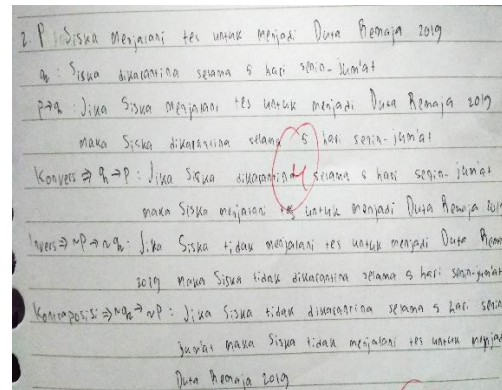 2. P Siska menjalani tes untuk menjadi Duta Remaja 2019
q : Siska dikarantina selama 5 hari senin-jum'at
p→q : Jika Siska menjalani tes untuk menjadi Duta Remaja 2019
maka Siska dikarantina selama 5 hari senin-jum'at
Konvers ⇒ q→p : Jika Siska dikarantina selama 5 hari senin-jum'at
maka Siska menjalani tes untuk menjadi Duta Remaja 2019
Invers ⇒ ~P → ~q : Jika Siska tidak menjalani tes untuk menjadi Duta Rema
2019 maka Siska tidak dikarantina selama 5 hari senin-jum'at
Kontraposisi ⇒ ~q → ~P : Jika Siska tidak dikarantina selama 5 hari senin
jum'at maka Siska tidak menjalani tes untuk menjadi
Duta Remaja 2019